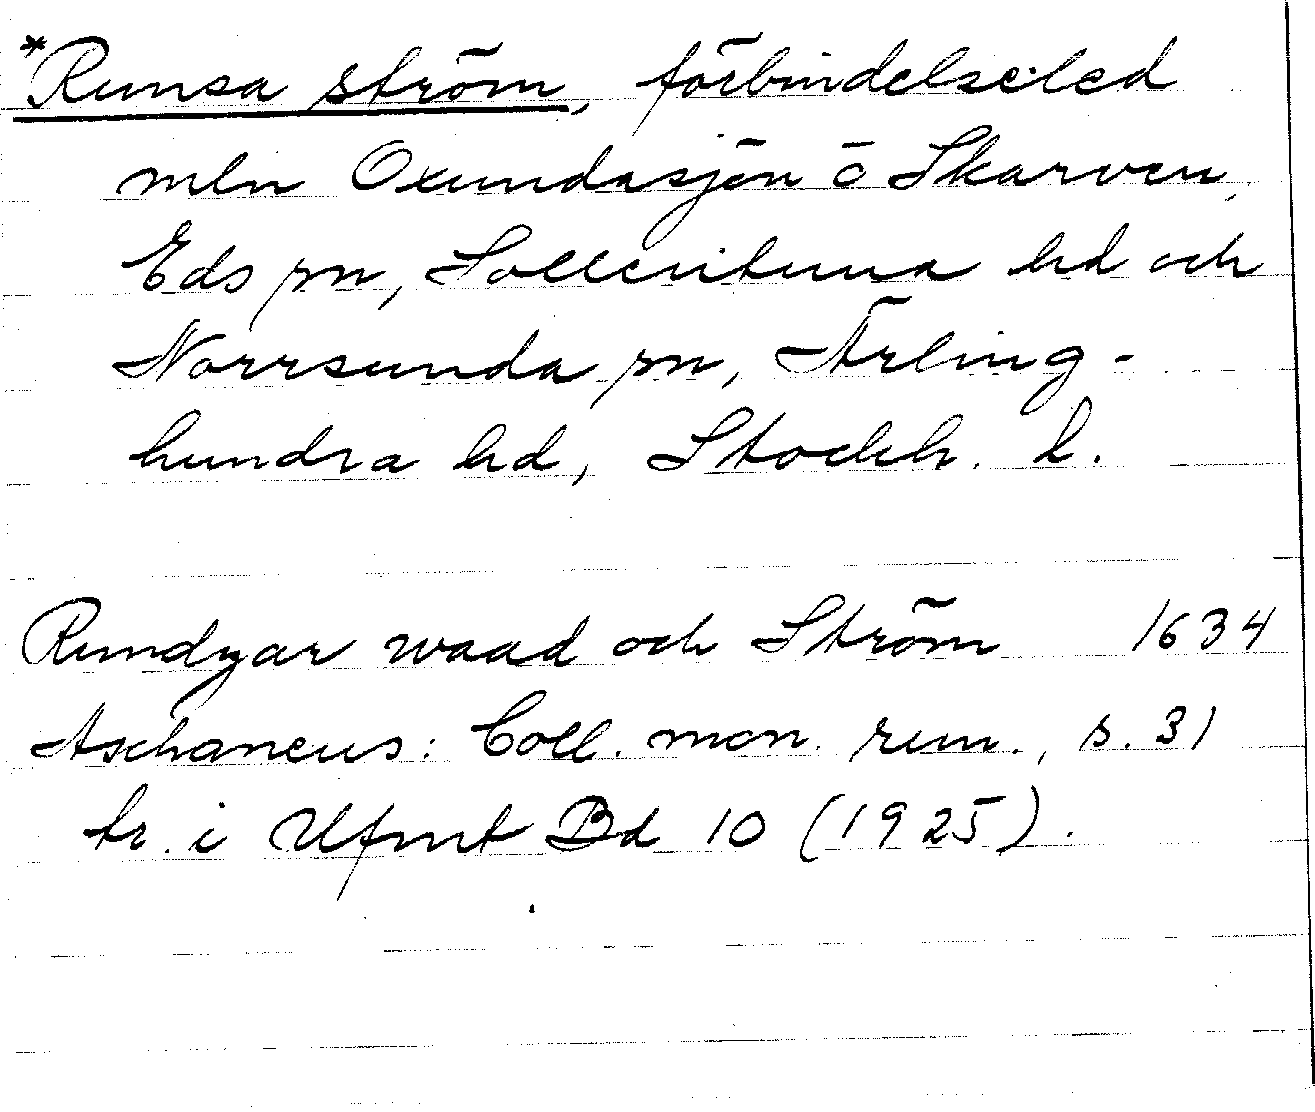 *Runsa ström, förbindelseled
mln Oxundasjön o Skarven,
Eds sn, Sollentuna hd och
Norrsunda sn, Ärling-
hundra hd, Stockh. l.
Rundzar waad och Ström 1634
Aschaneus: Coll. mon. run., s. 31
tr. i Ufmt Bd 10 (1925).